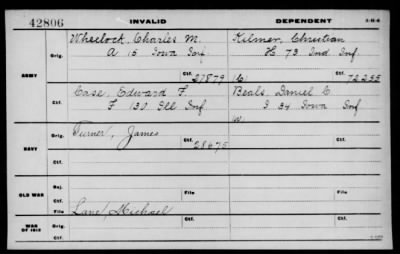 42806 INVALID DEPENDENT 3-014
Wheelock, Charles M. Kilmer, Christian
Orig. A 15 Iowa Inf H 73 Ind Inf
ARMY Ctf. 27879 (W) Ctf. 72235
Case, Edward F. Beals, Daniel C.
Ctf. F 130 Ill Inf I 34 Iowa Inf
W.
Turner, James
Orig. Ctf. 28675 Ctf.
NAVY
Ctf.
Rej. File File
OLD WAR
File Lane, Michael
WAR OF 1812 Orig. Ctf. Ctf.
Ctf.